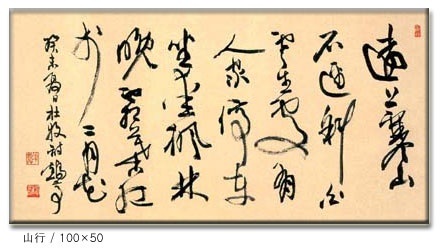 遠上寒山
石逕斜白
雲生處有
人家停車
坐愛楓林
晚霜葉紅
於二月花
癸未夏日杜牧詩
山行 / 100×50